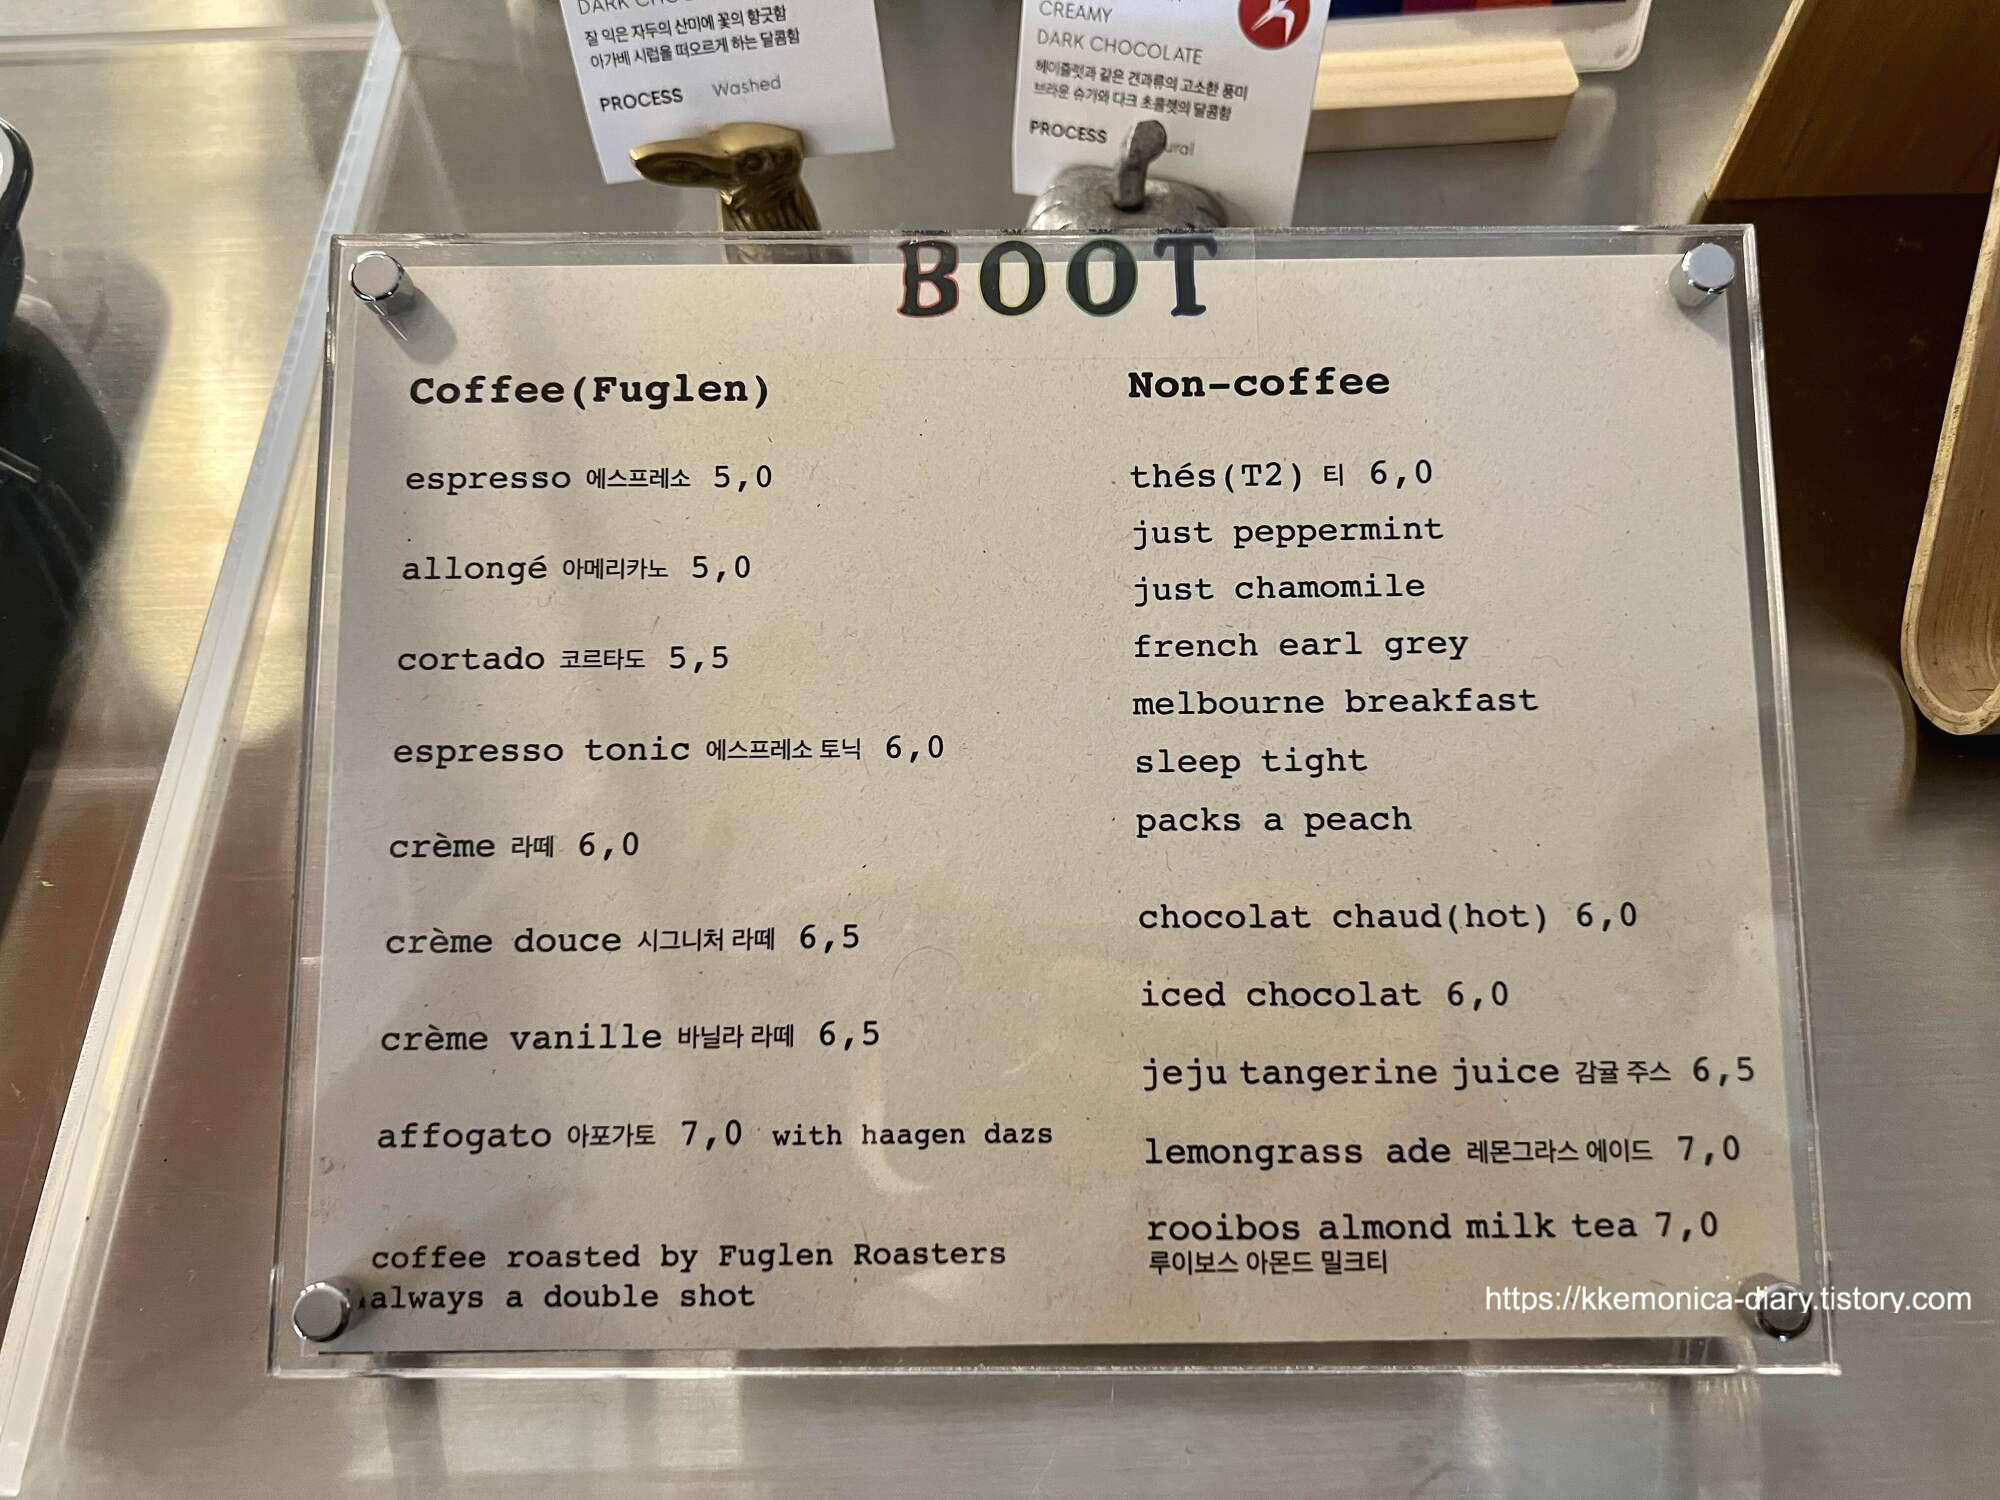 DARK CHO
잘 익은 자두의 산미에 꽃의 향긋함
아가베 시럽을 떠오르게 하는 달콤함
PROCESS Washed
CREAMY
DARK CHOCOLATE
헤이즐럿과 같은 견과류의 고소한 풍미
브라운 슈가와 다크 초콜렛의 달콤함
PROCESS
BOOT
Coffee(Fuglen)
espresso 에스프레소 5,0
allongé 아메리카노 5,0
cortado 코르타도 5,5
espresso tonic 에스프레소 토닉 6,0
crème 라떼 6,0
crème douce 시그니처 라떼 6,5
crème vanille 바닐라 라떼 6,5
affogato 아포가토 7,0 with haagen dazs
coffee roasted by Fuglen Roasters
always a double shot
Non-coffee
thés(T2) 티 6,0
just peppermint
just chamomile
french earl grey
melbourne breakfast
sleep tight
packs a peach
chocolat chaud(hot) 6,0
iced chocolat 6,0
jeju tangerine juice 감귤 주스 6,5
lemongrass ade 레몬그라스 에이드 7,0
rooibos almond milk tea 7,0
루이보스 아몬드 밀크티
https://kkemonica-diary.tistory.com